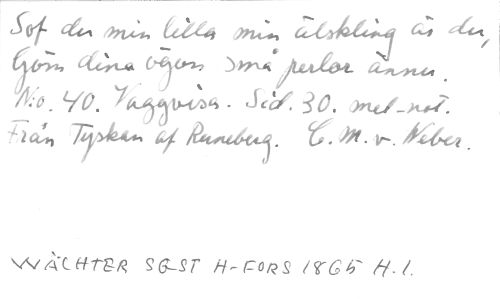 Sof du min lilla min älskling är du,
Göm dina ögon små perlor ännu.
N:o. 40. Vaggvisa. Sid. 30. mel-not.
Från Tyskan af Runeberg. C. M. v. Weber.
WÄCHTER SGST H-FORS 1865 H.1.